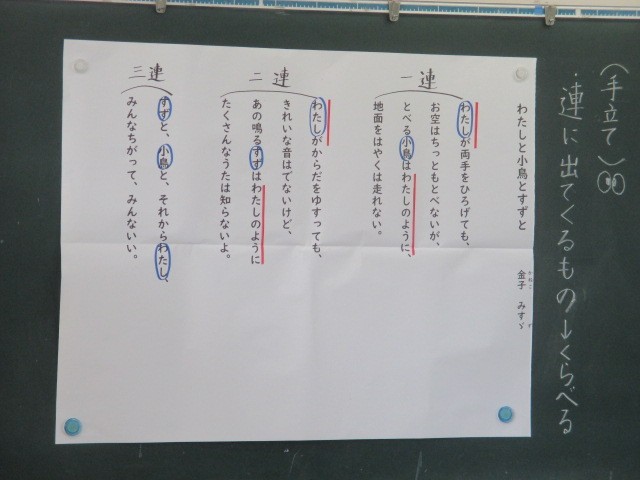 (手立て)
・連に出てくるもの→くらべる
わたしと小鳥とすずと
金子 みすゞ
かねこ
一連
わたしが両手をひろげても、
お空はちっともとべないが、
とべる小鳥はわたしのように、
地面をはやくは走れない。
二連
わたしがからだをゆすっても、
きれいな音はでないけど、
あの鳴るすずはわたしのように
たくさんなうたは知らないよ。
三連
すずと、小鳥と、それからわたし、
みんなちがって、みんないい。